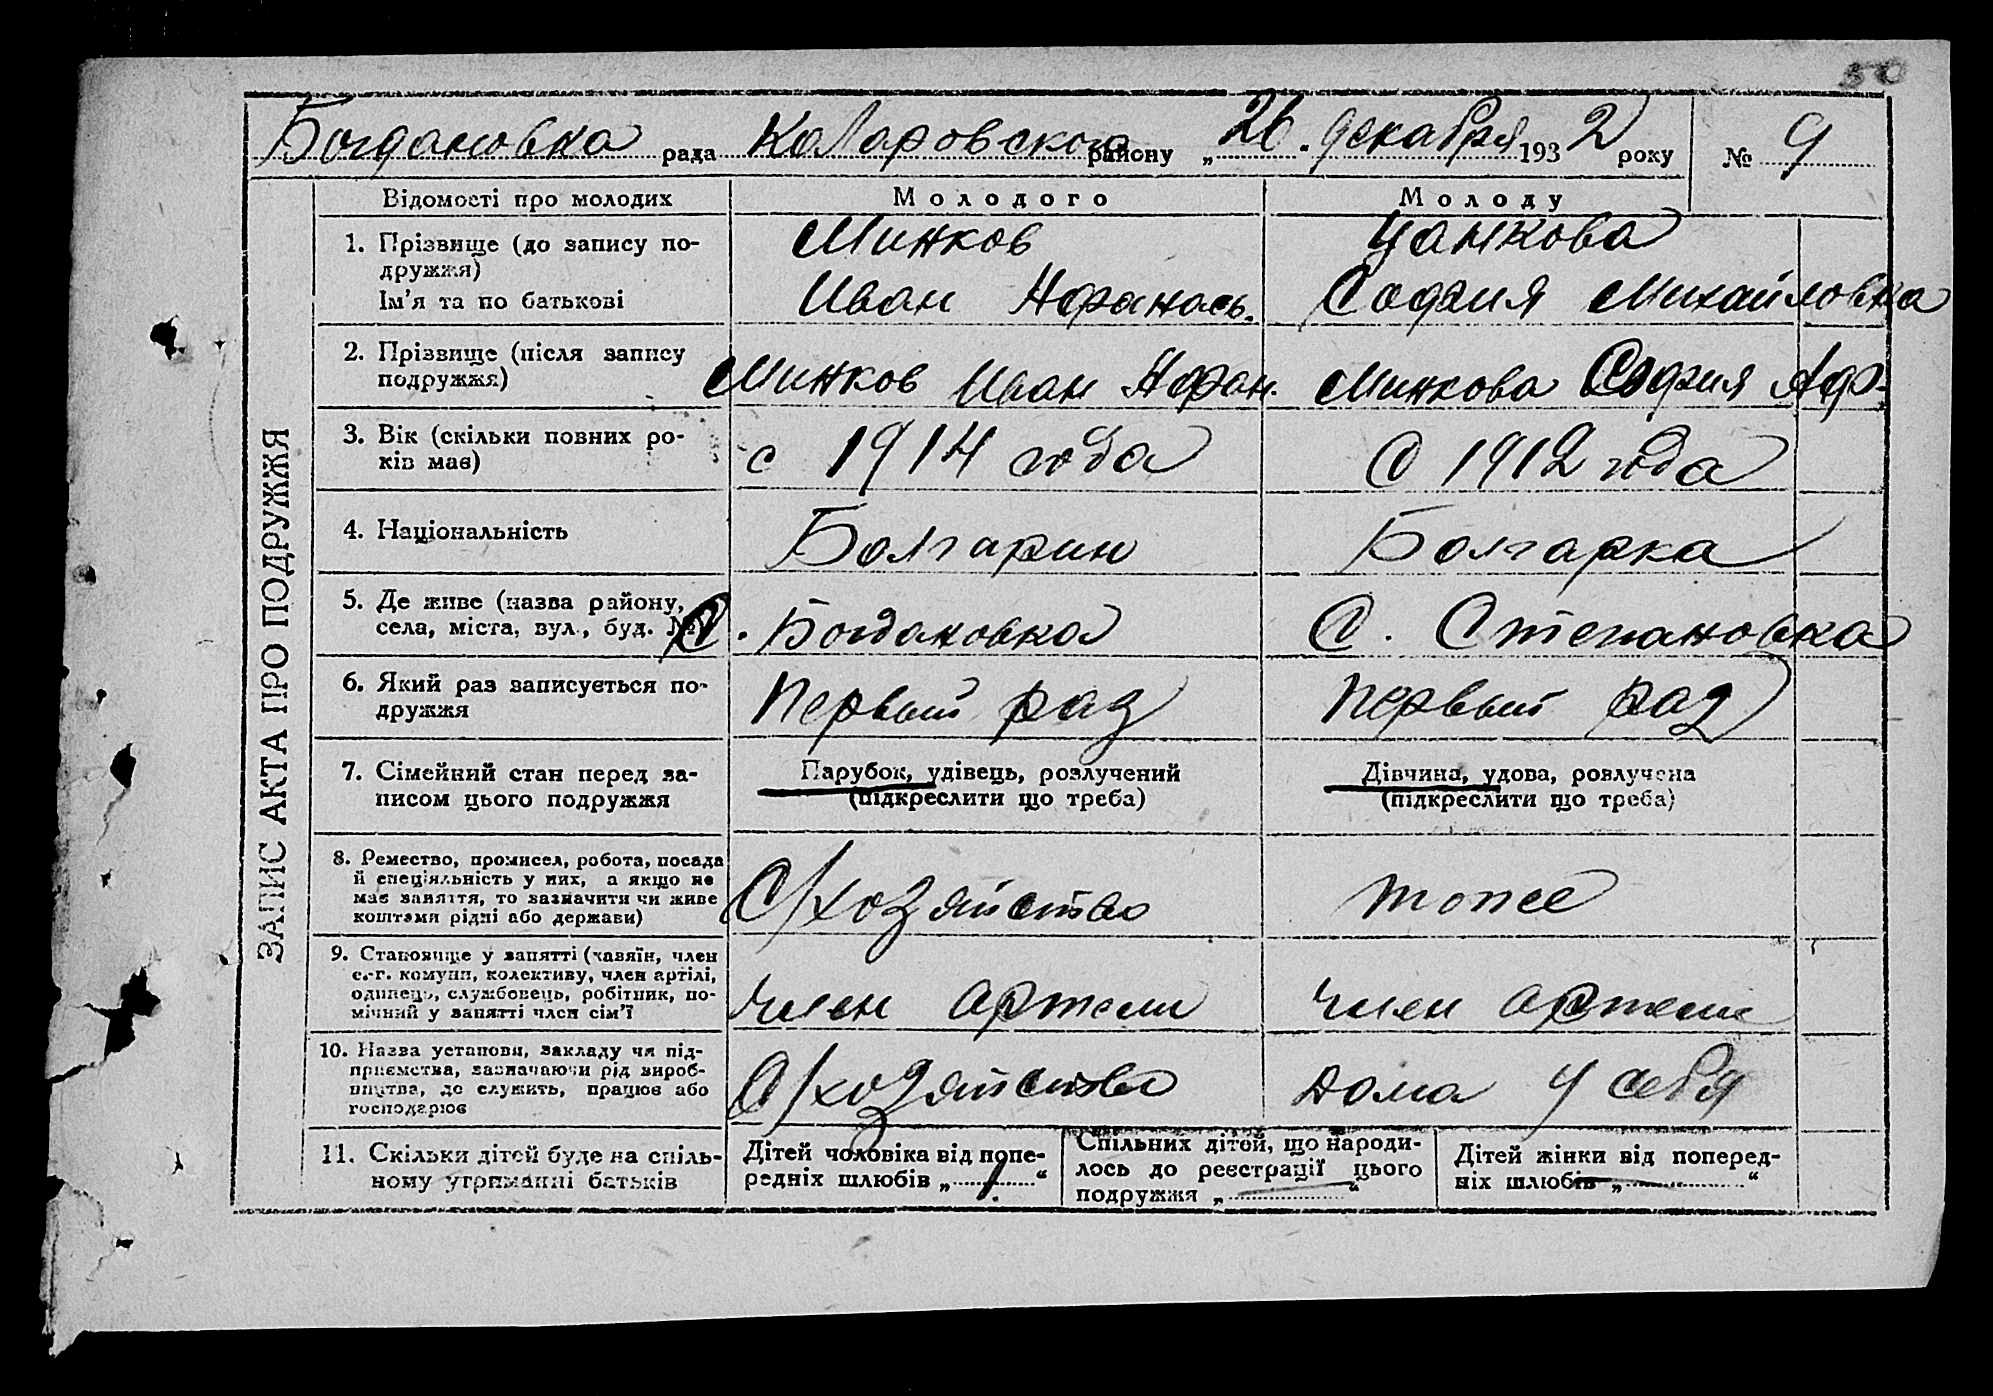 50
Богдановка рада Коларовского району „ 26 . декабря 1932 року № 9
ЗАПИС АКТА ПРО ПОДРУЖЖЯ
Відомості про молодих Молодого Молоду
1. Прізвище (до запису по- Минков Цанкова
дружжя)
Ім'я та по батькові Иван Афанась. София Михайловка
2. Прізвище (після запису
подружжя) Минков Иван Афан. Минкова София Аф-
3. Вік (скільки повних ро-
ків має) с 1914 года С 1912 года
4. Національність Болгарин Болгарка
5. Де живе (назва району,
села, міста, вул., буд. № С. Богдановка С. Степановка
6. Який раз записується по-
дружжя Первый раз Первый раз
7. Сімейний стан перед за- Парубок, удівець, розлучений Дівчина, удова, розлучена
писом цього подружжя (підкреслити що треба) (підкреслити що треба)
8. Ремество, промисел, робота, посада
й спеціяльність у них, а якщо не
має заняття, то зазначити чи живе С/хозяйство тоже
коштами рідні або держави)
9. Становище у занятті (хазяїн, член
с.-г. комуни, колективу, член артілі,
одинець, службовець, робітник, по- член артели член артели
мічний у занятті член сім'ї
10. Назва установи, закладу чи під-
приємства, зазначаючи рід вироб-
ництва, де служить, працює або С/хозяйство дома у себя
господарює
11. Скільки дітей буде на спіль-
ному утриманні батьків
Дітей чоловіка від попе-
редніх шлюбів „ “
Спільних дітей, що народи-
лось до реєстрації цього
подружжя „ — “
Дітей жінки від поперед-
ніх шлюбів — „ “